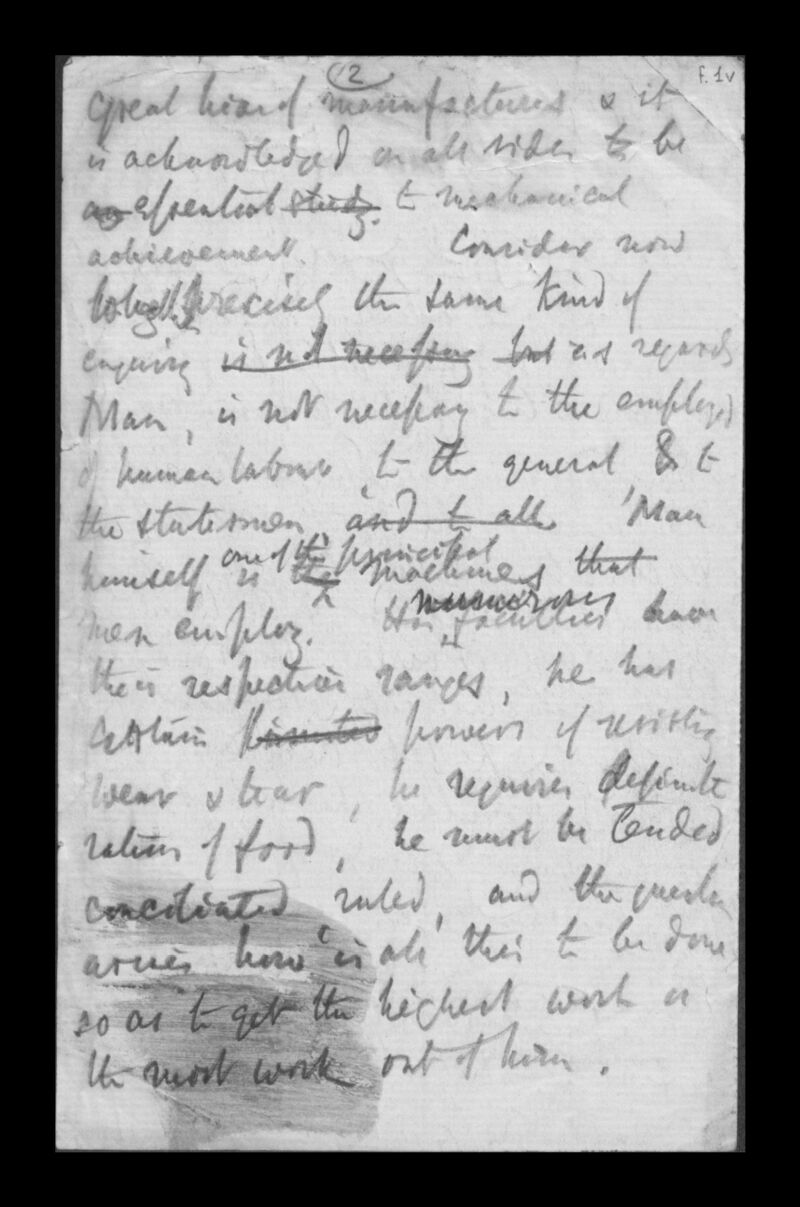 12
f. 1v
great kind of manufactures & it
is acknowledged on all sides to be
an essential study to mechanical
achievement. Consider now
precisely the same kind of
enquiry is not necessary but as regards
Man, is not necessary to the employer
of human labour, to the general & to
the statesmen, and to all. Man
one of the principal
himself is the machines that
numerous
men employ. His faculties have
their respective ranges, he has
certain limited powers of resisting
wear & tear, he requires definite
rations of food, he must be tended
conciliated, ruled, and the question
arises how is all this to be done
so as to get the highest work or
the most work out of him.